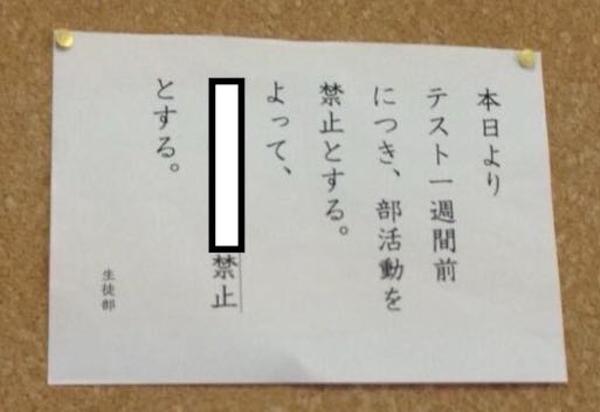 本日より
テスト一週間前
につき、部活動を
禁止とする。
よって、
禁止
とする。
生徒部